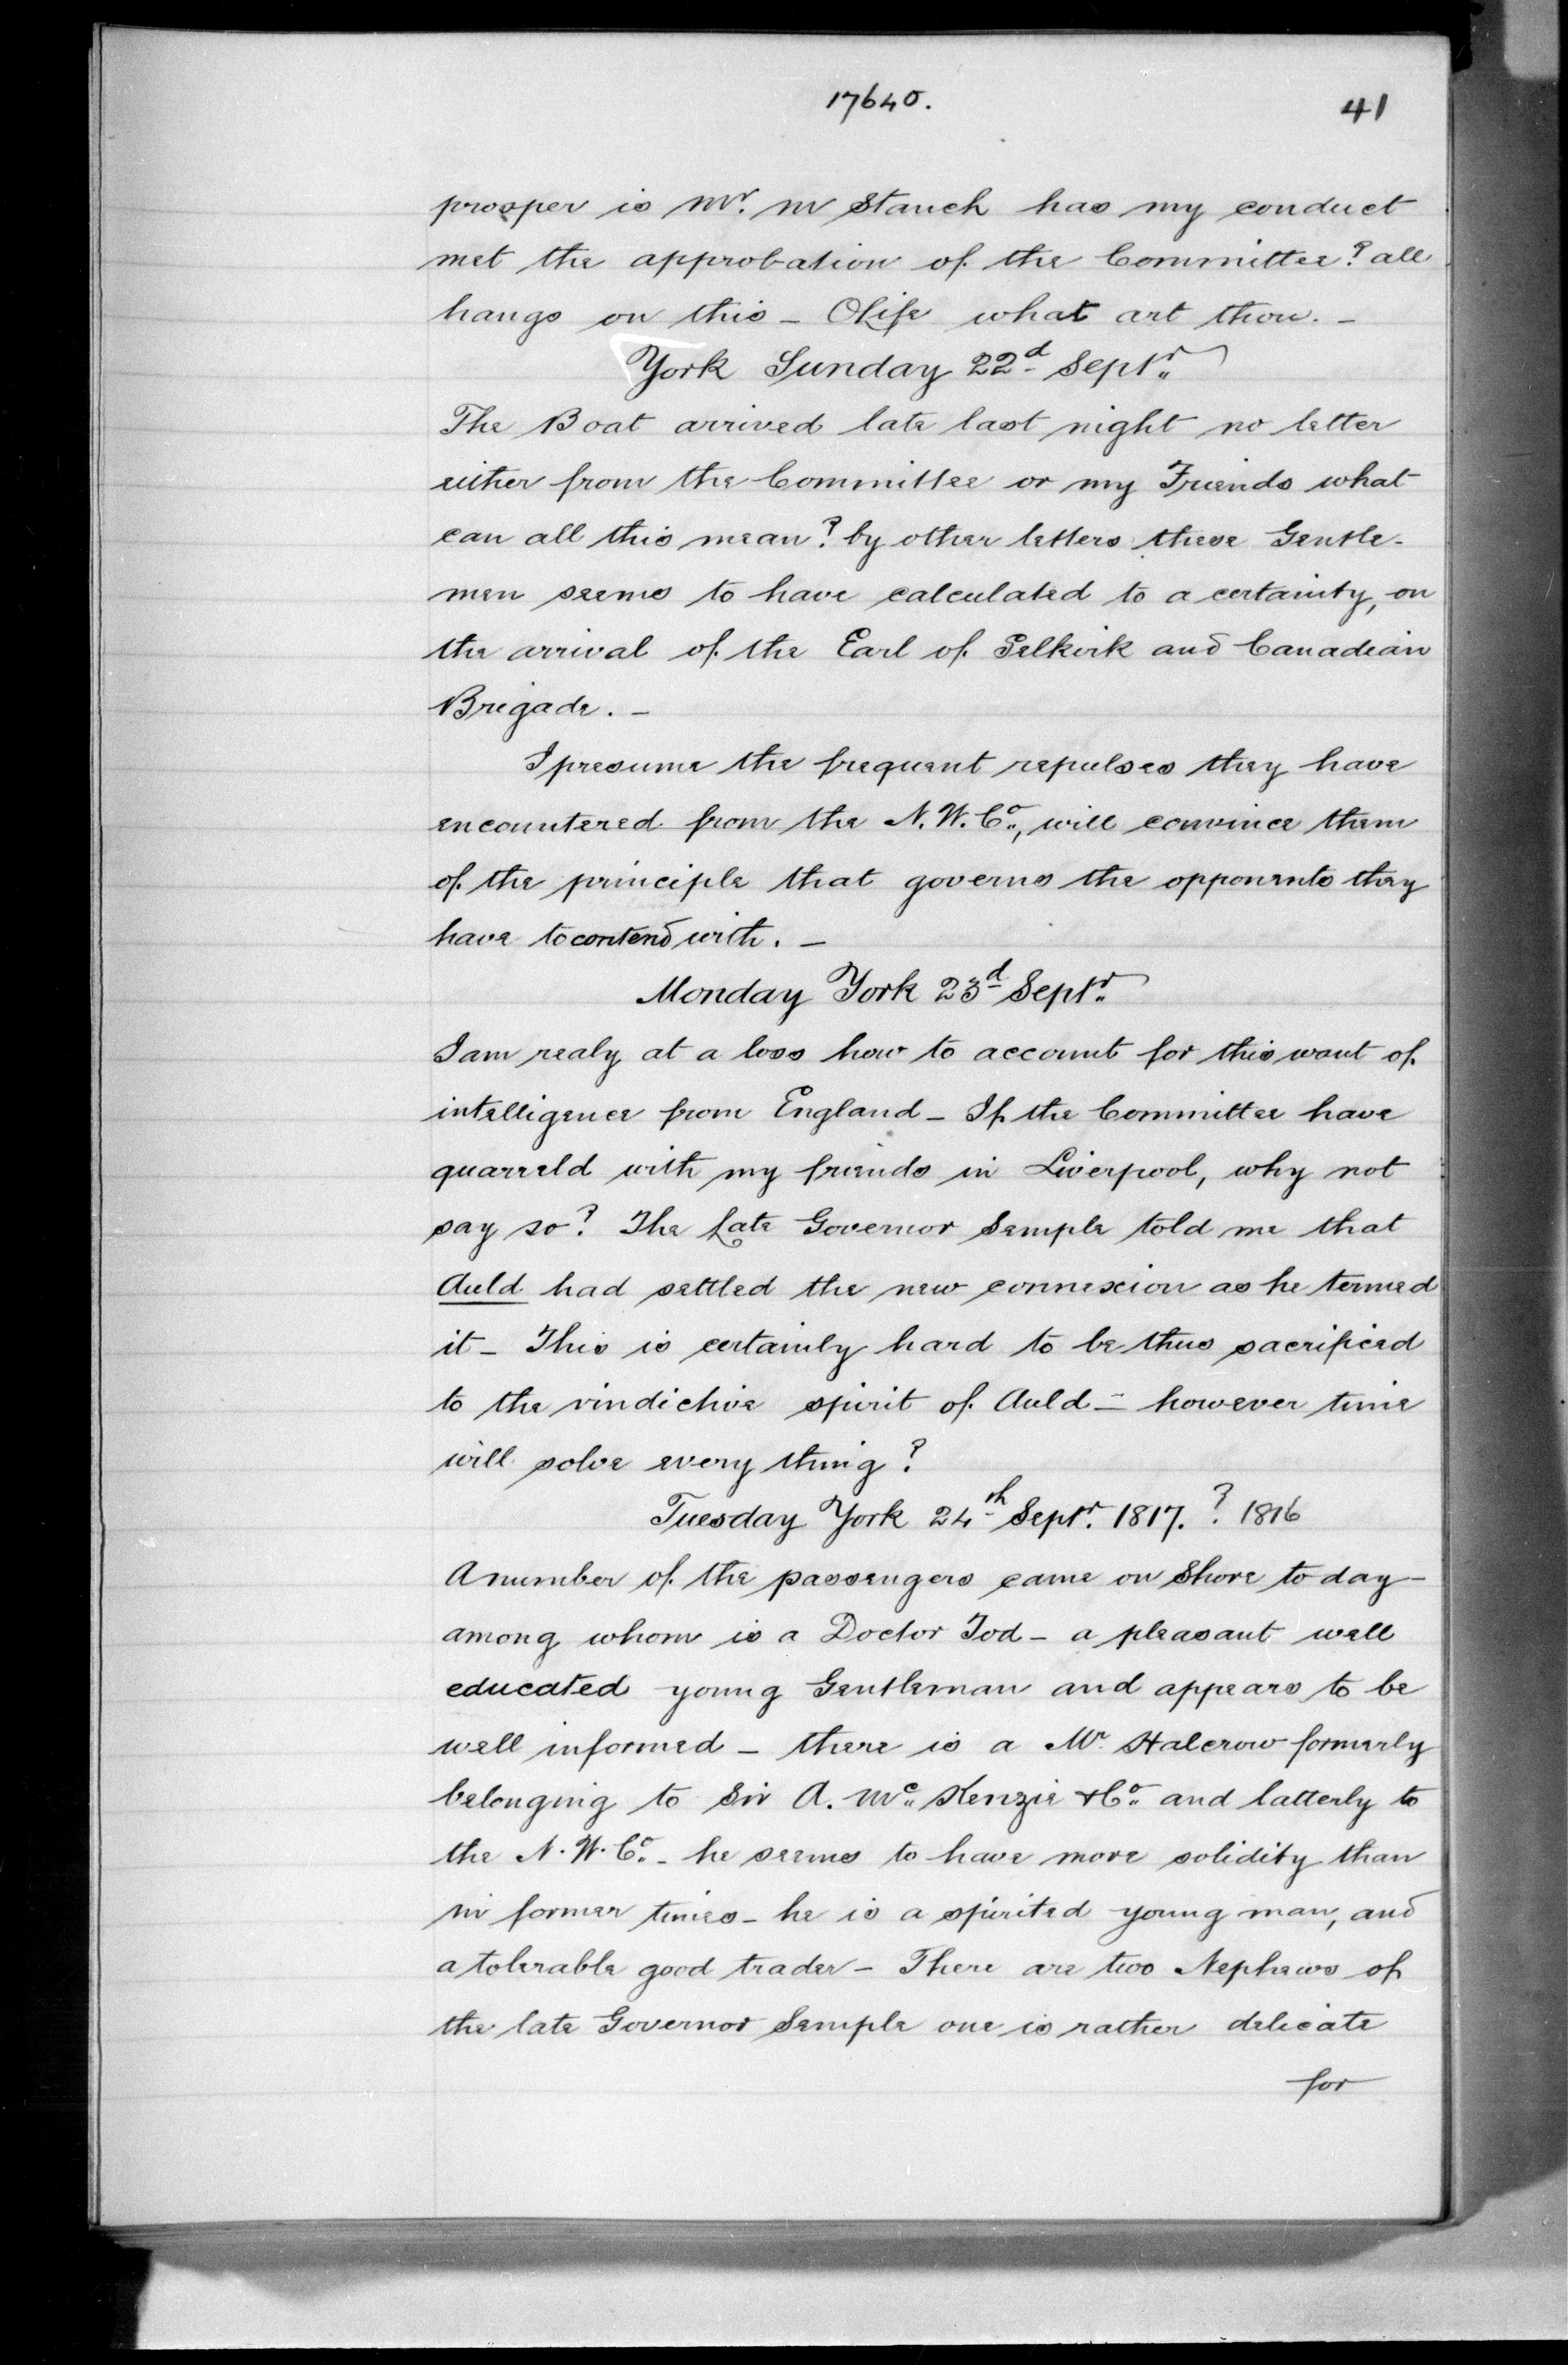 17640.
41
prosper is Mr. M Stanch has my conduct
met the approbation of the Committee? all
hangs on this - O Life what art thou. -
York Sunday 22d Septr.
The Boat arrived late last night no letter
either from the Committee or my Friends what
can all this mean? by other letters these Gentle-
men seems to have calculated to a certainty, on
the arrival of the Earl of Selkirk and Canadian
Brigade. -
I presume the frequent repulses they have
encountered from the N. W. Co., will convince them
of the principle that governs the opponents they
have to contend with. -
Monday York 23d Septr.
I am realy at a loss how to account for this want of
intelligence from England - If the Committee have
quarreld with my friends in Liverpool, why not
say so? The Late Governor Semple told me that
Auld had settled the new connexion as he termed
it - This is certainly hard to be thus sacrificed
to the vindictive spirit of Auld - however time
will solve every thing?
Tuesday York 24th Septr. 1817. ? 1816
A number of the passengers came on Shore to day -
among whom is a Doctor Tod - a pleasant well
educated young Gentleman and appears to be
well informed - there is a Mr Halcrow formerly
belonging to Sir A. Mc. Kenzie & Co. and latterly to
the N. W. Co. - he seems to have more solidity than
in former times - he is a spirited young man, and
a tolerable good trader - There are two Nephews of
the late Governor Semple one is rather delicate
for